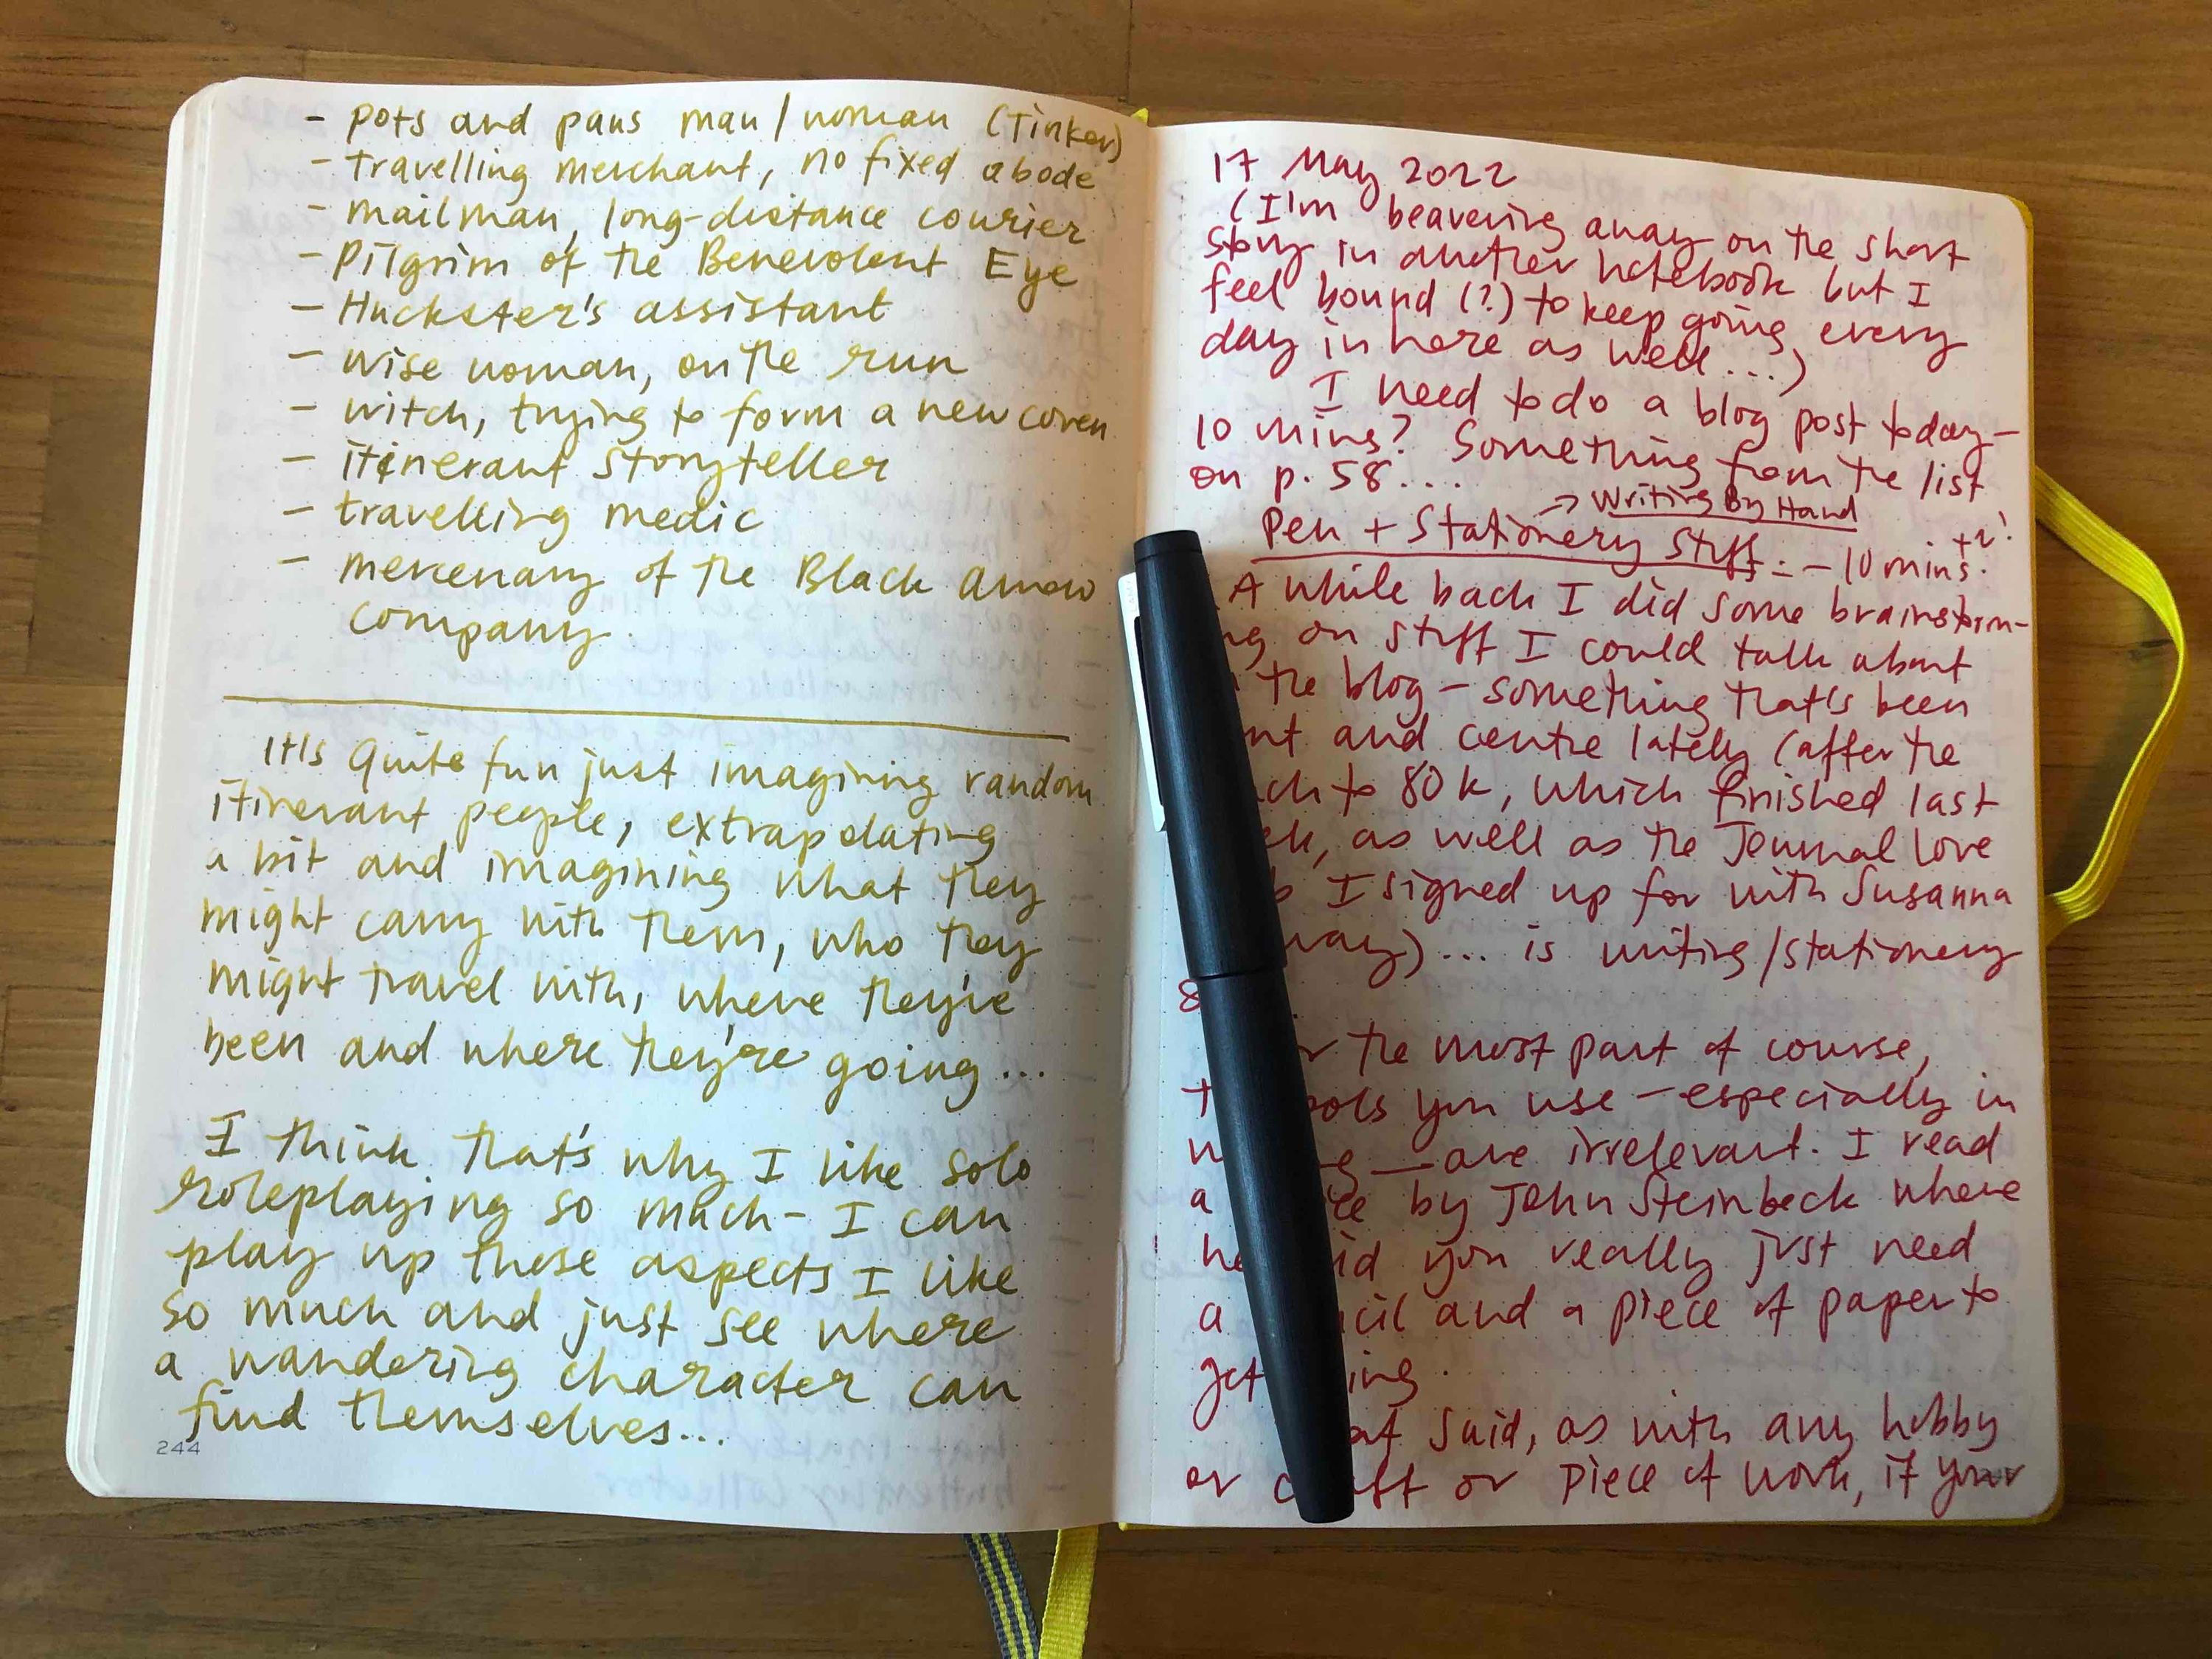 - pots and pans man/woman (Tinker)
- travelling merchant, no fixed abode
- mailman, long-distance courier
- Pilgrim of the Benevolent Eye
- Huckster's assistant
- wise woman, on the run
- witch, trying to form a new coven
- itinerant storyteller
- travelling medic
- mercenary of the Black Arrow
company.
It's quite fun just imagining random
itinerant people, extrapolating
a bit and imagining what they
might carry with them, who they
might travel with, where they've
been and where they're going...
I think that's why I like solo
roleplaying so much - I can
play up these aspects I like
so much and just see where
a wandering character can
find themselves...
244
17 May 2022
(I'm beavering away on the short
story in another notebook but I
feel bound (?) to keep going every
day in here as well...)
I need to do a blog post today -
10 mins? Something from the list
on p. 58....
→ Writing By Hand
Pen + Stationery Stuff: - 10 mins. +2?
A while back I did some brainstorm-
ng on stuff I could talk about
the blog - something that's been
nt and centre lately (after the
ch to 80k, which finished last
ek, as well as the Journal Love
b I signed up for with Susanna
way)... is writing/stationery
8
r the most part of course,
t ools you use - especially in
w g - are irrelevant. I read
a te by John Steinbeck where
he id you really just need
a ncil and a piece of paper to
get ing.
at said, as with any hobby
or c aft or piece of work, if your